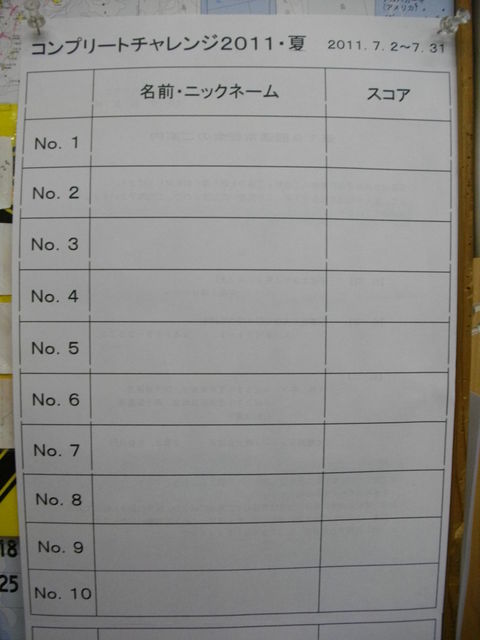 コンプリートチャレンジ2011・夏 2011.7.2~7.31
名前・ニックネーム スコア
No. 1
No. 2
No. 3
No. 4
No. 5
No. 6
No. 7
No. 8
No. 9
No. 10
18
25